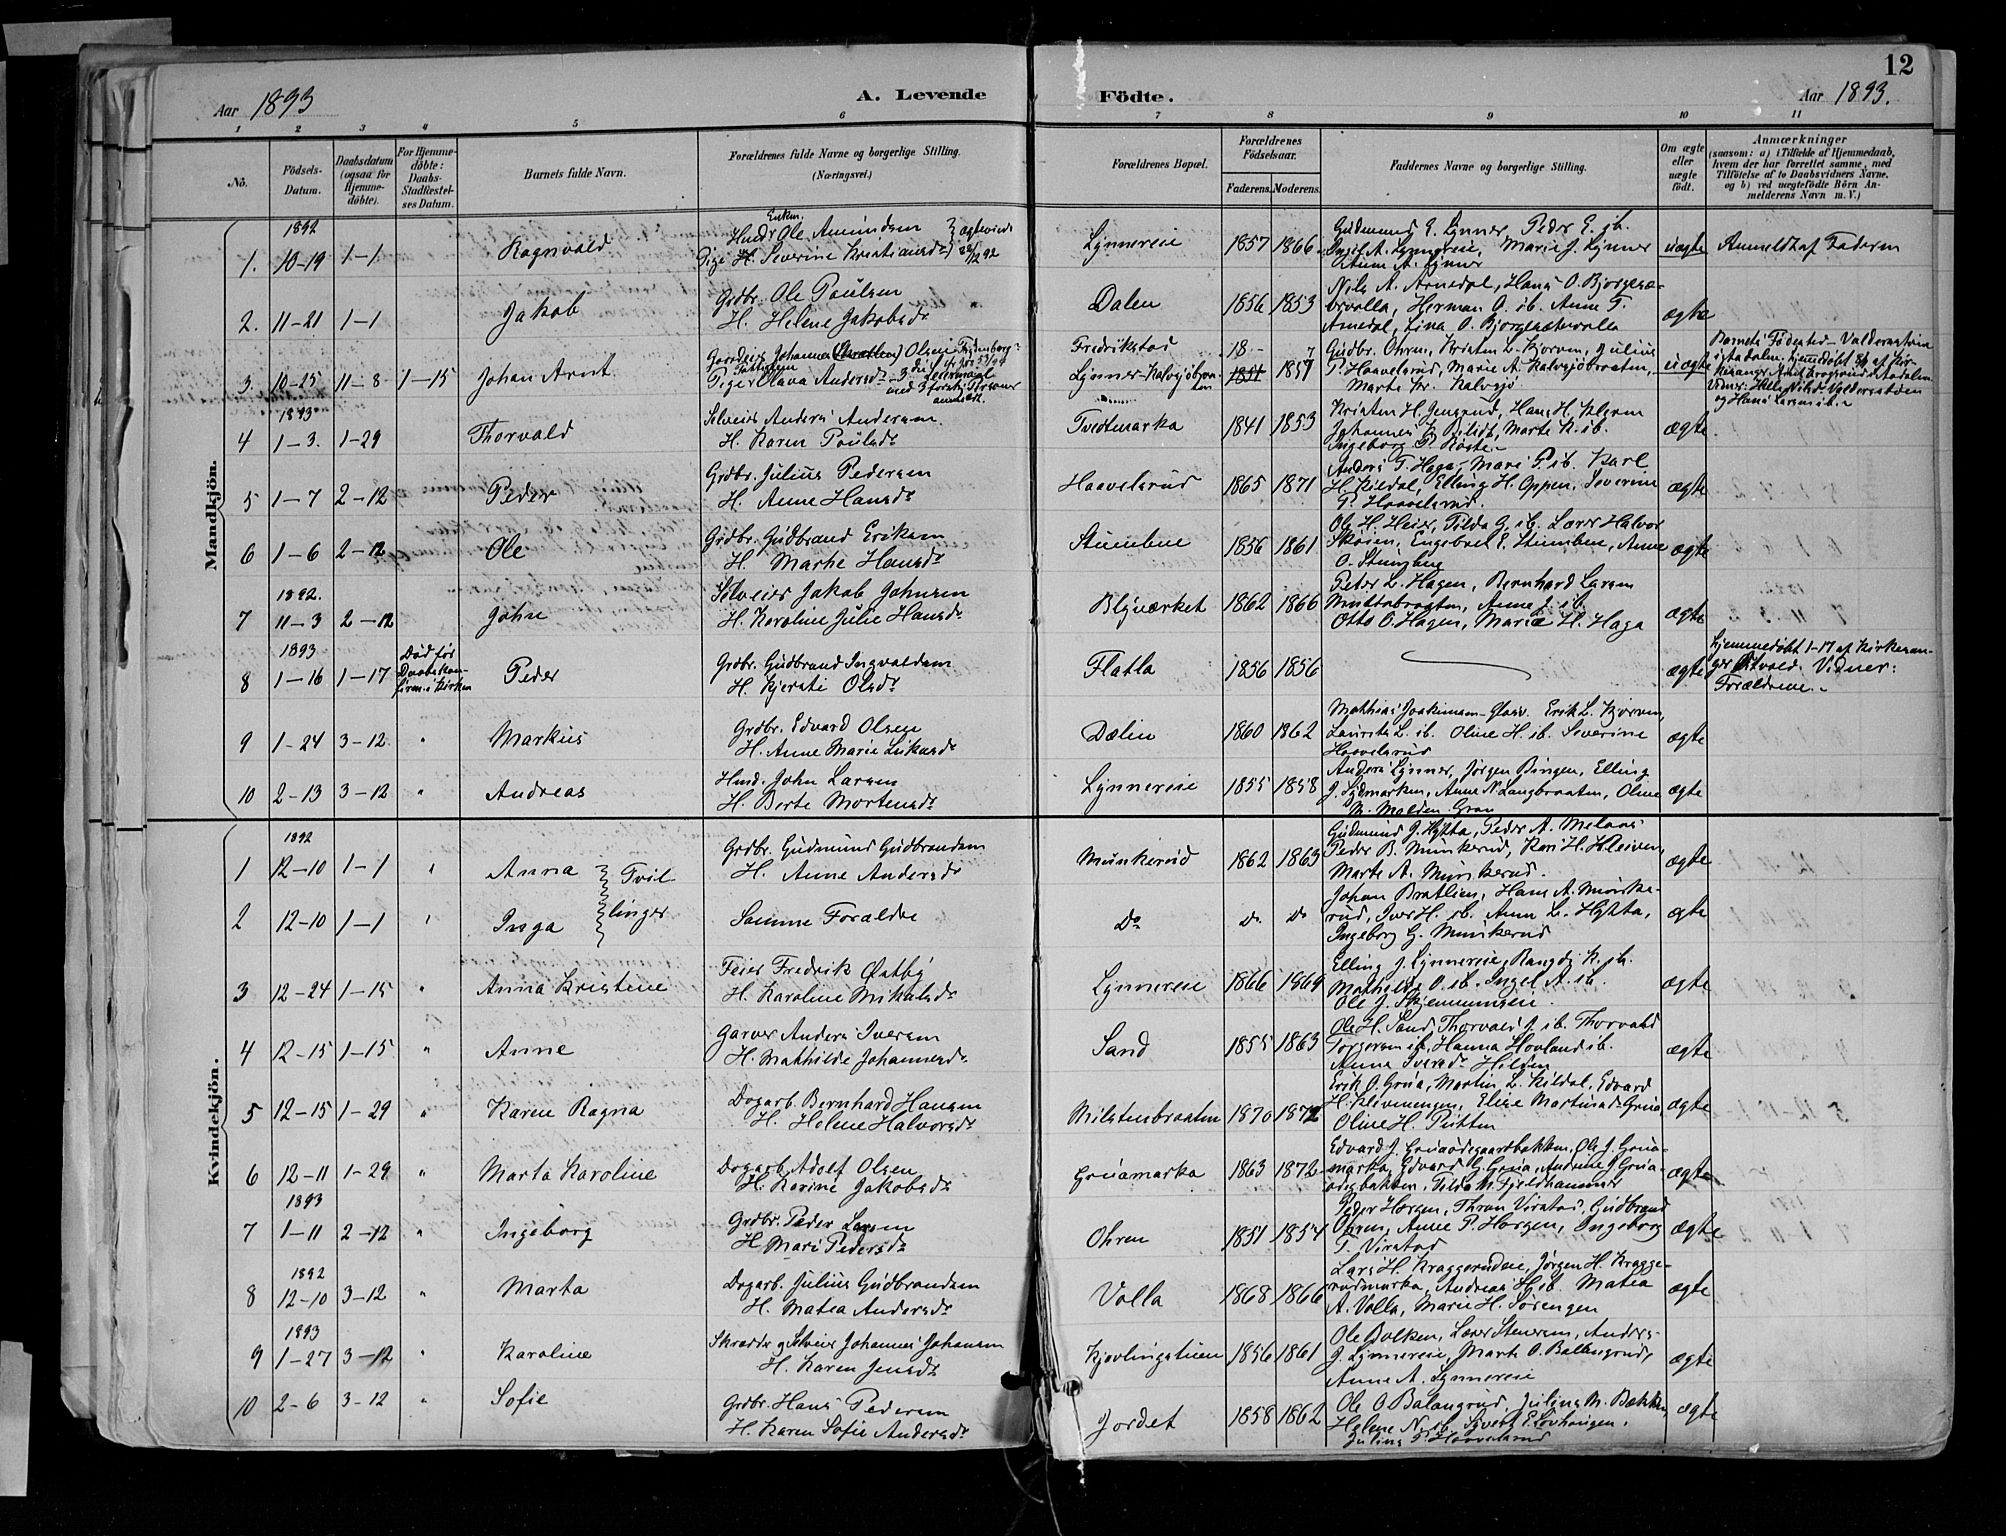 12
Aar 1893
A. Levende
Födte.
Aar 1893.
1 2 3 4 5 6 7 8 9 10 11
No.
Födsels-Datum.
Daabsdatum (ogsaa for Hjemme-döbte).
For Hjemme-döbte: Daabs-Stadfæstel-ses Datum.
Barnets fulde Navn.
Forældrenes fulde Navne og borgerlige Stilling. (Næringsvei.)
Forældrenes Bopæl.
Forældrenes Födselsaar.
Faderens. Moderens.
Faddernes Navne og borgerlige Stilling.
Om ægte eller uægte födt.
Anmærkninger
(saasom: a) i Tilfælde af Hjemmedaab,
hvem der har forrettet samme, med
Tilföielse af to Daabsvidners Navne,
og b) ved uægtefödte Börn An-
melderens Navn m. V.)
Mandkjön.
1892
1. 10-19 1-1 Ragnvald
Enkem.
Ole Amundsen
Pige Severine Kristiansd
Lynnereie 1857 1866
Gudmund E. Lynner, Peder E. ib.
Marie J. Lynner
uægte Anmeldt af Faderen
2. 11-21 1-1 Jakob
Grdbr. Ole Paulsen
H. Helene Jakobsdr
Dalen 1856 1853
Nils A. Arnedal, Hans O. Bjorgesæ-
tervolla, Herman O. ib. Anne T.
Arnedal, Lina O. Bjorgesætervolla
ægte
3 10-25 11-8 1-15 Johan Arnt.
Johannes Olsen
Pige Olava Andersdr
Fredrikstad 18-
Lynner-Kalvsjøbraa-
ten 1851 1857
Gudbr. Ohren, Kristen L. Kjorven, Julius
P. Haavelsrud, Marie A. Kalvsjøbraaten,
Marte Kr. Kalvsjø
uægte
Barnets Fødested Valdersætren
og Hans Larsen ib.
1893
4 1-3. 1-29 Thorvald
Selveier Anders Andersen
H. Karen Paulsdr
Tvedtmarka 1841 1853
Johannes K. Bilidt, Marte K. ib.
Ingeborg P. Røste
ægte
5 1-7 2-12 Peder
Grdbr. Julius Pedersen
H. Anne Hansdr
Haavelsrud 1865 1871
Anders T. Haga, Mari P. ib. Karl
H. Kildal, Elling H. Oppen, Severine
P. Haavelsrud.
ægte
6 1-6 2-12 Ole
Grdbr. Gudbrand Eriksen
H. Marthe Hansdr
Stumbne 1856 1861
Ole H. Heier, Tilda G. ib. Lærer Halvor
Skøien, Engebret E. Stumbne, Anne
O. Stumbne
ægte
1892.
7 11-3 2-12 John
Selveier Jakob Johnsen
H. Karoline Julie Hansdr
Blyværket 1862 1866
Peder L. Hagen, Bernhard Larsen
Muttabraaten, Anne J. ib.
Otto O. Hagen, Marie H. Haga
ægte
1893
8 1-16 1-17
Død før
Daabskon-
firm. i Kirken
Peder
Grdbr. Gudbrand Ingvaldsen
H. Kjersti Olsdr
Flatla 1856 1856
ægte
Hjemmedøbt 1-17 af Kirkesan-
ger Østvold. Vidner:
Forældrene.
9 1-24 3-12 " Markus
Grdbr. Edvard Olsen
H. Anne Marie Lukasdr
Dælin 1860 1862
Mathias Joakimsen-Glasv. Erik L. Kjorven,
Laurits L. ib. Oline H. ib. Severine
Haavelsrud
ægte
10 2-13 3-12 " Andreas
Hmd. John Larsen
H. Berte Mortensdr
Lynnereie 1855 1858
Anders Lynner, Jørgen Bingen, Elling
J. Lysmarken, Anne N. Langbraaten, Oline
M. Molden Gran
ægte
Kvindekjön.
1892
1 12-10 1-1 " Anna } Tvil-
Grdbr. Gudmund Gudbrandsen
H. Anne Andersdr
Munkerud 1862 1863
Gudmund J. Hytta, Peder A. Melaas
Peder B. Munkerud, Kari H. Kleiven,
Marte A. Munkerud.
ægte
2 12-10 1-1 " Inga } linger
Samme Forældre
Do Do Do
Johan Bratlien, Hans A. Munke-
rud, Iver H. ib. Anne L. Hytta,
Ingeborg G. Munkerud
ægte
3 12-24 1-15 " Anna Kristine
Feier Fredrik Østby
H. Karoline Mikalsdr
Lynnereie 1866 1869
Elling J. Lynnereie, Rangdi K. ib.
Mathilde O. ib. Ingel A. ib.
Ole J. Skjerven
ægte
4 12-15 1-15 " Anne
Garver Anders Iversen
H. Mathilde Johannesdr
Sand 1855 1863
Ole H. Sand, Thorvald J. ib. Thorvald
Torgersen ib. Hanna Hovland ib.
Anna Iversdr Hilden
ægte
5 12-15 1-29 " Karen Ragna
Dagarb. Bernhard Hansen
H. Helene Halvorsdr
Milstenbraaten 1870 1872
Erik O. Grua, Martin L. Kildal, Edvard
H. Klevmengen, Elise Martinsdr Grua
Oline H. Putten
ægte
6 12-11 1-29 " Marta Karoline
Dagarb. Adolf Olsen
H. Karine Jakobsdr
Gruamarka 1863 1872
Edvard J. Gruaødegaardbakken, Ole J. Grua-
marka, Edvard G. Grua, Andrine J. Grua-
ødegbakken, Tilda M. Fjeldhammer
ægte
1893
7 1-11 2-12 " Ingeborg
Grdbr. Peder Larsen
H. Mari Pedersdr
Ohren 1851 1854
Peder Horgen, Thron Virstad, Gudbrand
Ohren, Anne P. Horgen, Ingeborg
T. Virstad
ægte
1892
8 12-10 3-12 " Marta
Dagarb. Julius Gudbrandsen
H. Matea Andersdr
Volla 1868 1866
Lars H. Kraggerudeie, Jørgen H. Kragge-
rudmarka, Andreas H. ib. Matea
A. Volla, Marie H. Sørengen
ægte
1893
9 1-27 3-12 " Karoline
Skrædder og Selveier Johannes Johansen
H. Karen Jensdr
Kjovlingstuen 1856 1861
Ole Bolken, Lærer Stenersen, Anders
J. Lynnereie, Marte O. Ballangrud,
Anne A. Lynnereie
ægte
10 2-6 3-12 " Sofie
Grdbr. Hans Pedersen
H. Karen Sofie Andersdr
Jordet 1858 1862
Ole O. Balangrud, Juline M. Bækken
Helene N. ib. Syvert E. Lovhaugen.
Juline P. Haavelsrud
ægte